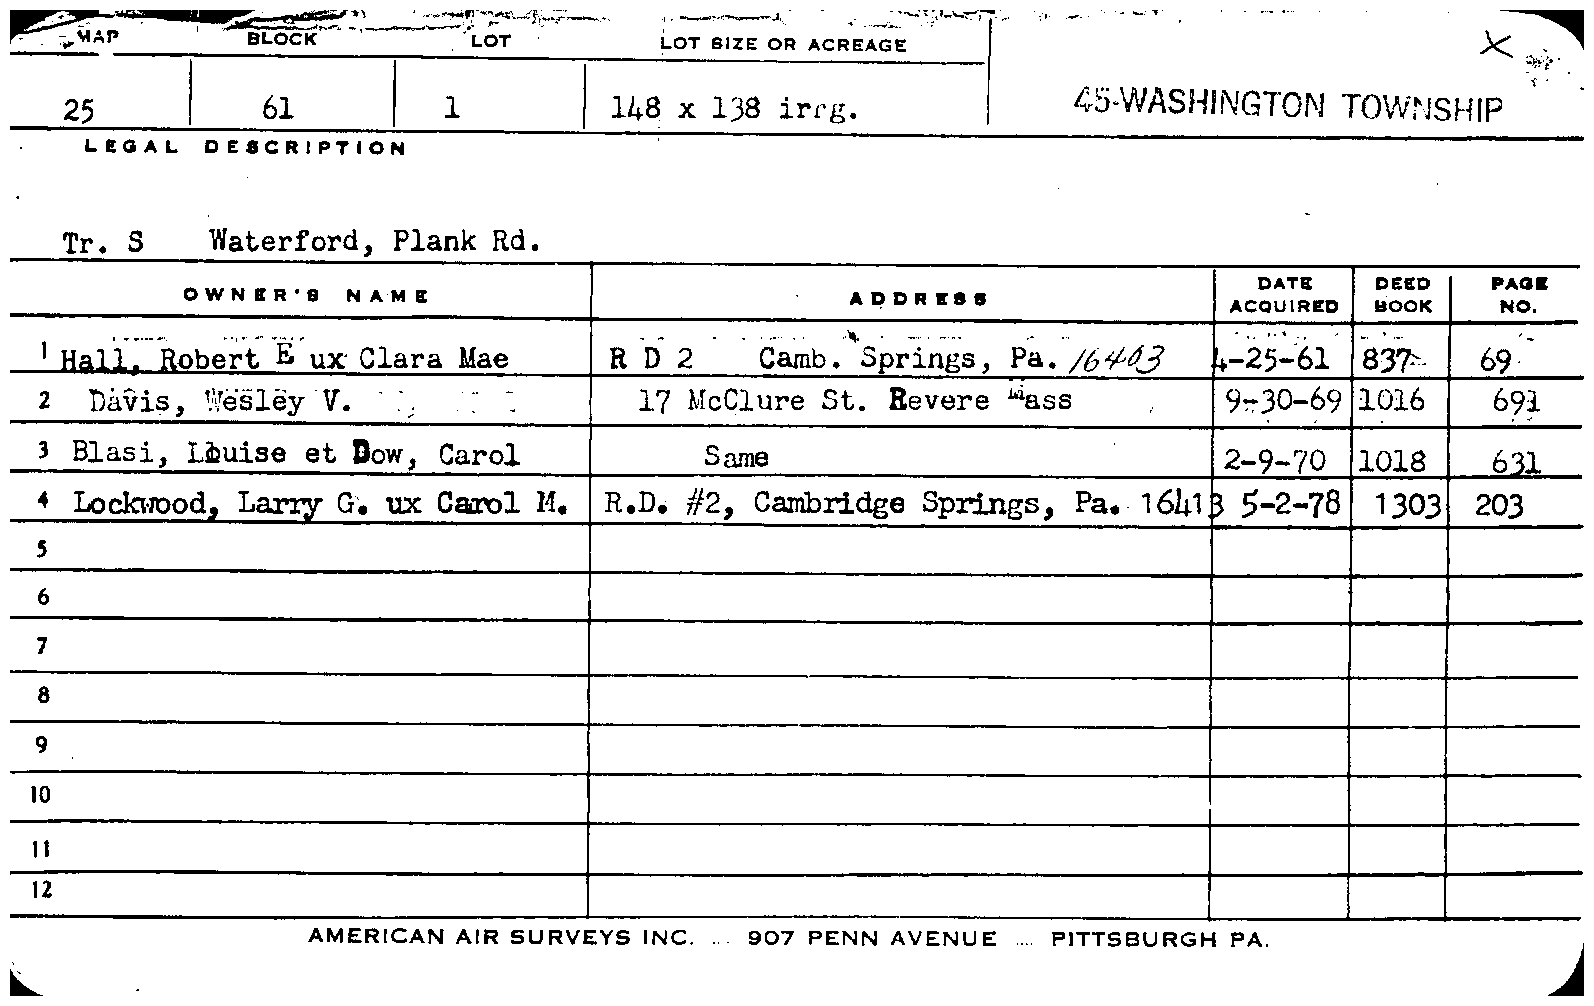 MAP BLOCK LOT LOT SIZE OR ACREAGE X
25 61 1 148 x 138 irrg. 45-WASHINGTON TOWNSHIP
LEGAL DESCRIPTION
Tr. S Waterford, Plank Rd.
OWNER'S NAME ADDRESS DATE ACQUIRED DEED BOOK PAGE NO.
1 Hall, Robert E ux Clara Mae R D 2 Camb. Springs, Pa. 16403 4-25-61 837 69
2 Davis, Wesley V. 17 McClure St. Revere Mass 9-30-69 1016 691
3 Blasi, Louise et Dow, Carol Same 2-9-70 1018 631
4 Lockwood, Larry G. ux Carol M. R.D. #2, Cambridge Springs, Pa. 16413 5-2-78 1303 203
5
6
7
8
9
10
11
12
AMERICAN AIR SURVEYS INC. ... 907 PENN AVENUE .... PITTSBURGH PA.